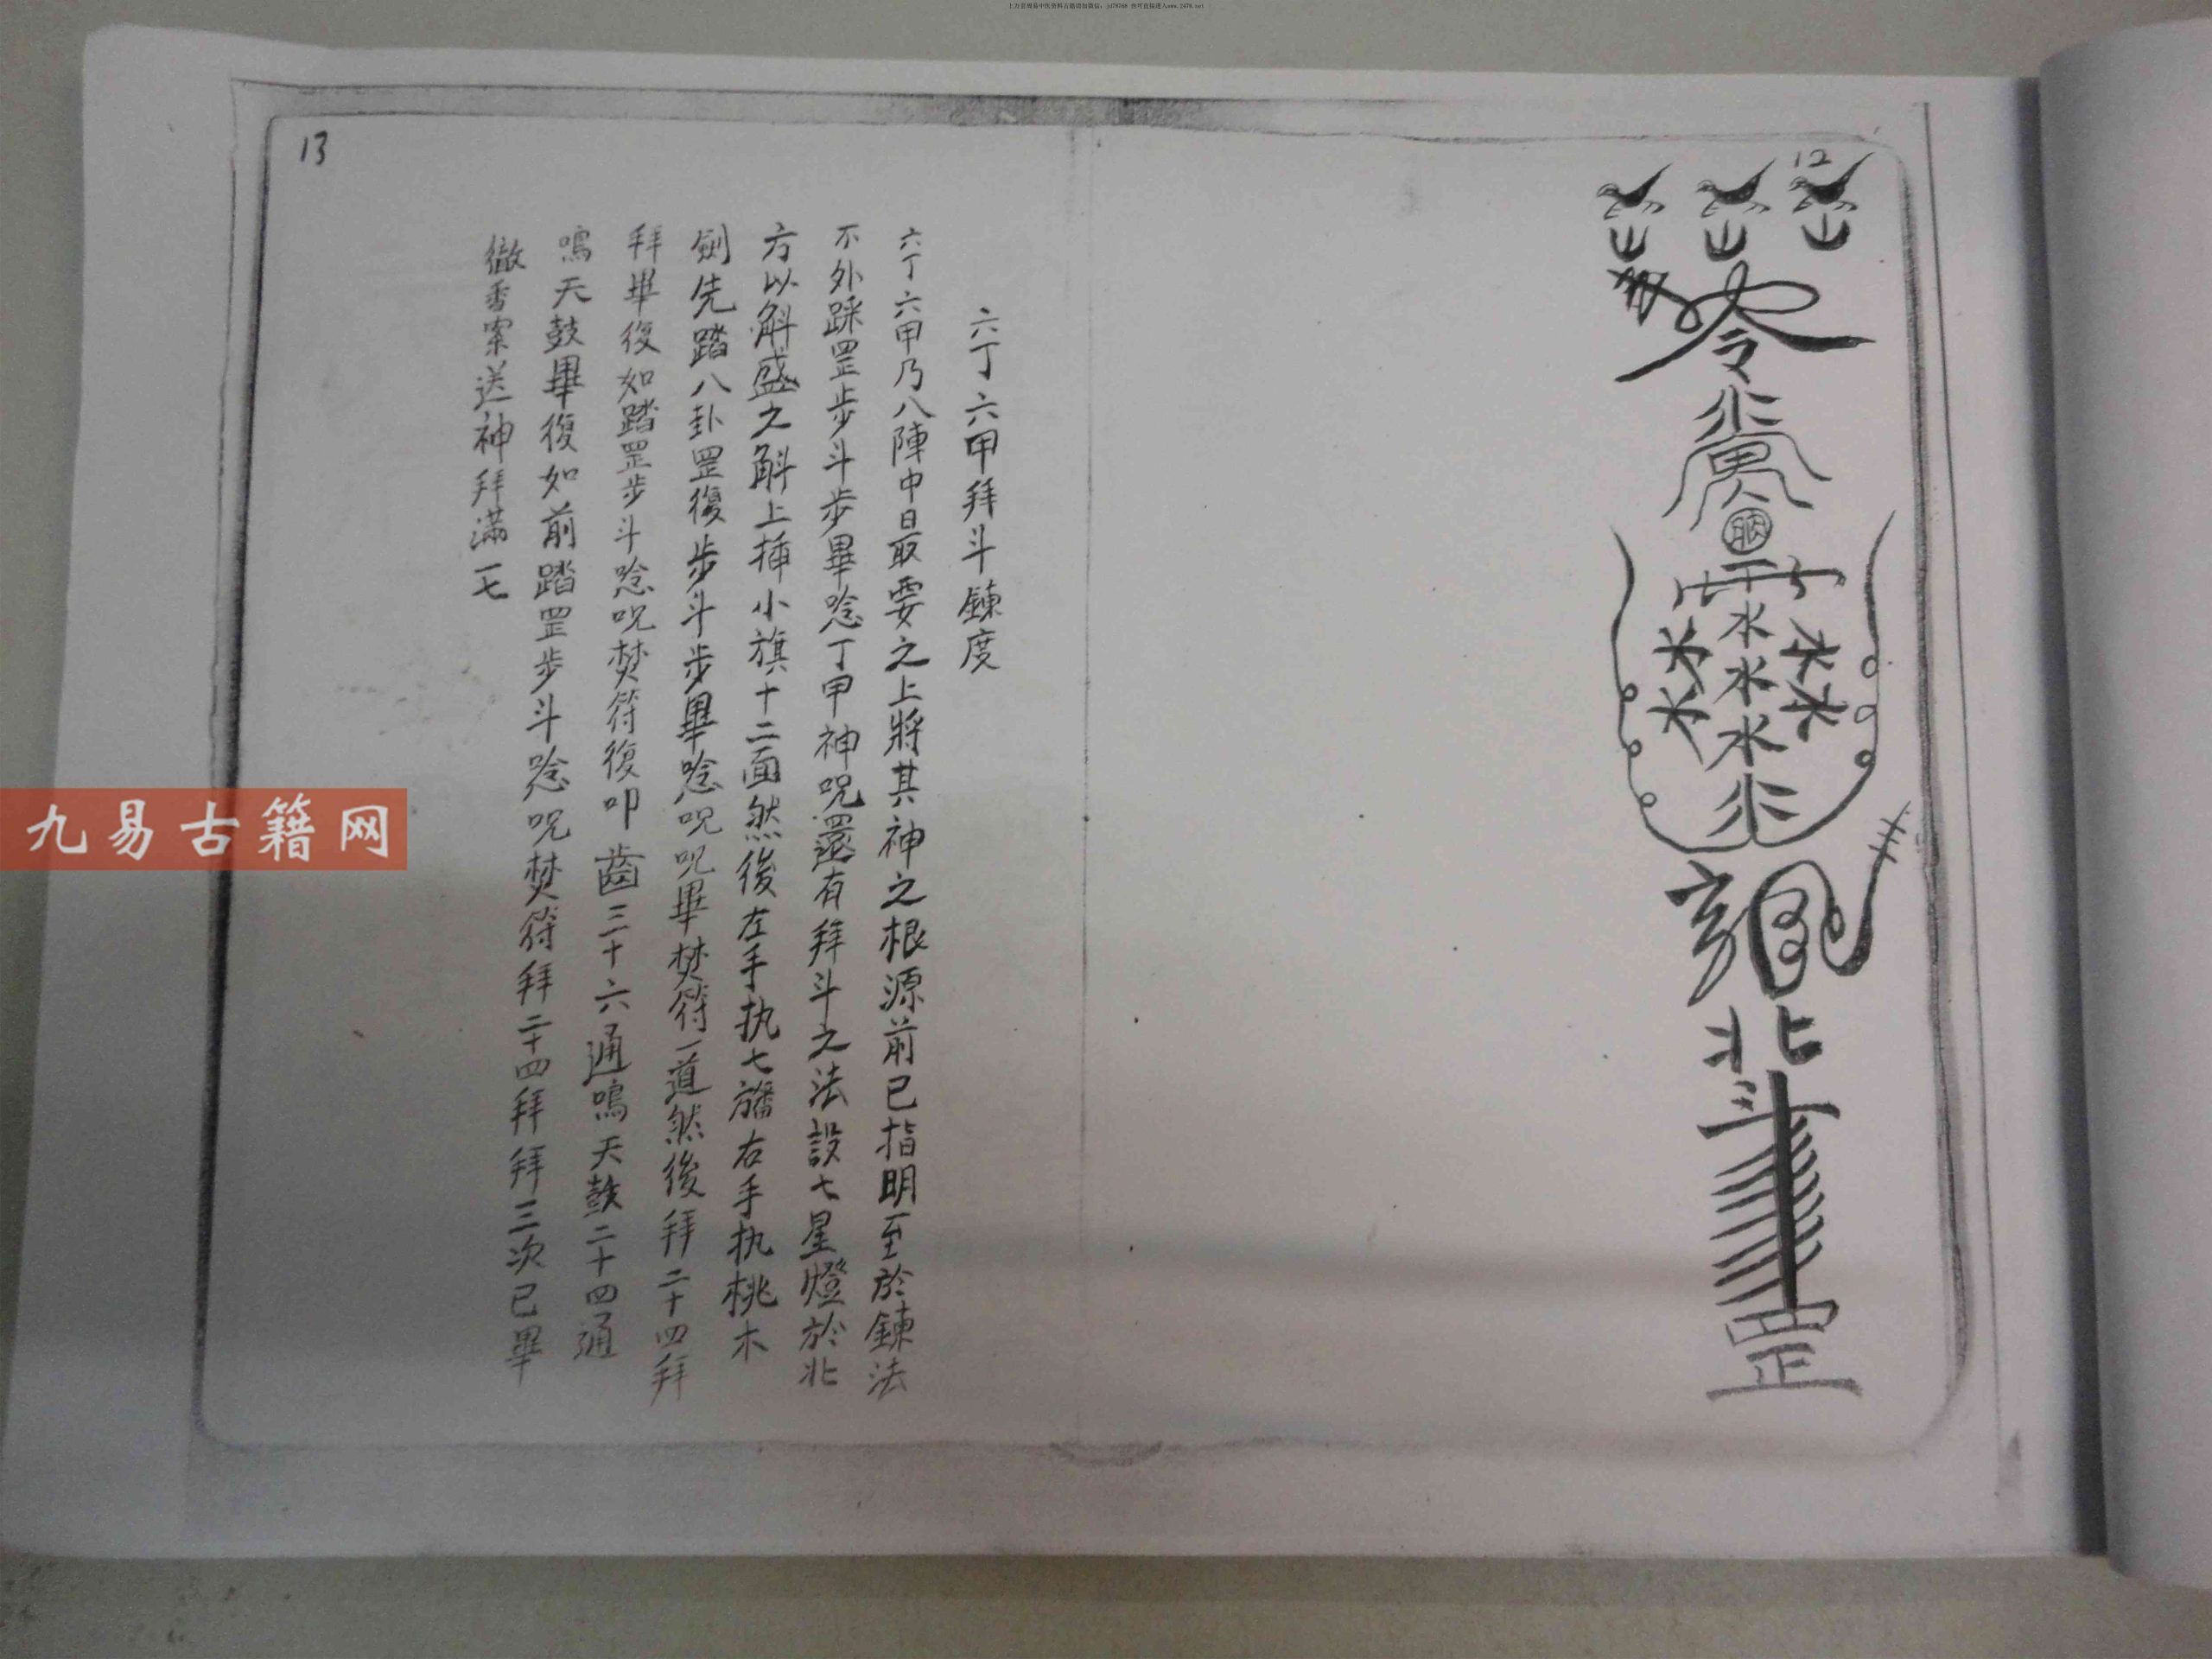 12
令
水
水
水
北
斗
罡
13
六丁六甲拜斗鍊度
六丁六甲乃八陣中日最要之上將其神之根源前已指明至於鍊法
不外踩罡步斗步畢唸丁甲神呪還有拜斗之法設七星燈於北
方以斛盛之斛上插小旗十二面然後左手执七旛右手执桃木
劍先踏八卦罡復步斗步畢唸呪呪畢焚符一道然後拜二十四拜
拜畢復如踏罡步斗唸呪焚符復叩齒三十六通鳴天鼓二十四通
鳴天鼓畢復如前踏罡步斗唸呪焚符拜二十四拜拜三次已畢
徹香案送神拜滿一七
九易古籍网